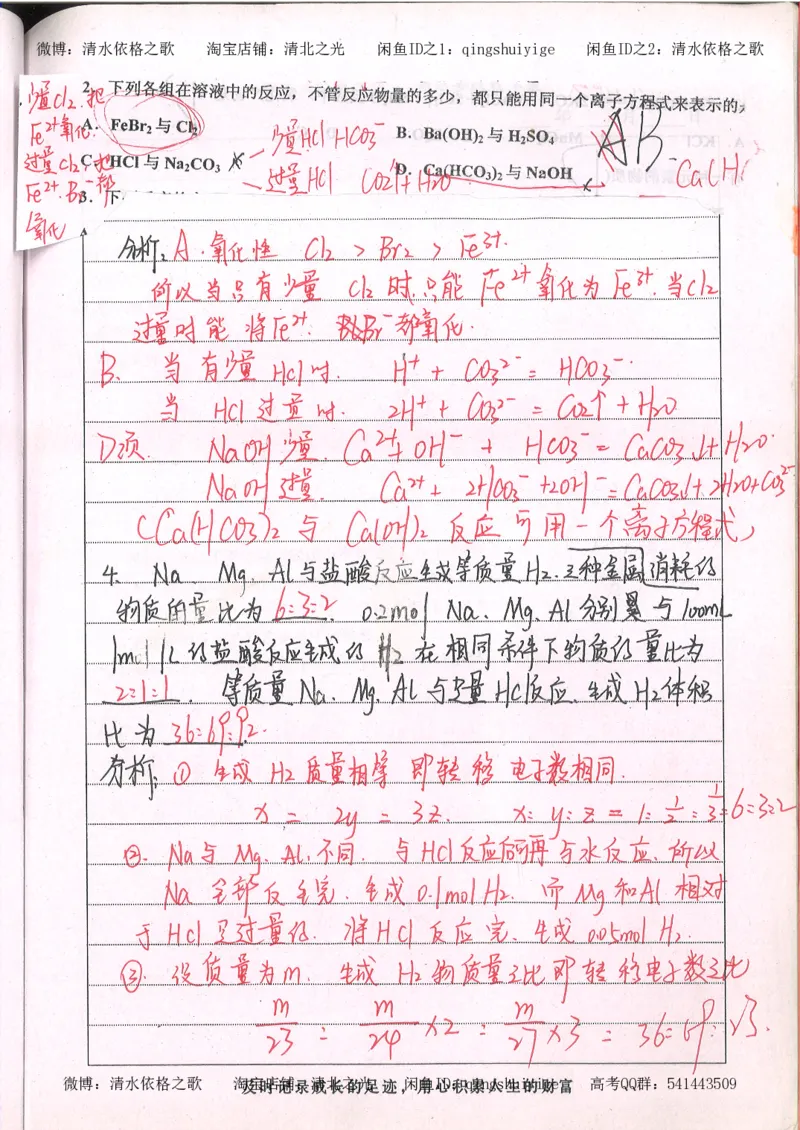 微博：清水依格之歌 淘宝店铺：清北之光 闲鱼ID之1：qingshuiyige 闲鱼ID之2：清水依格之歌
2. 下列各组在溶液中的反应，不管反应物量的多少，都只能用同一个离子方程式来表示的
A. FeBr₂ 与 Cl₂ B. Ba(OH)₂ 与 H₂SO₄ AB
C. HCl 与 Na₂CO₃ D. Ca(HCO₃)₂ 与 NaOH
3. 下
少量Cl₂.把
Fe²⁺氧化.
过量Cl₂.把
Fe²⁺.Br⁻都
氧化
少量HCl HCO₃⁻
过量HCl CO₂↑+H₂O
Ca(H
分析: A.氧化性 Cl₂ > Br₂ > Fe³⁺.
所以当只有少量 Cl₂ 时.只能 Fe²⁺氧化为 Fe³⁺.当Cl₂
过量时能将Fe²⁺. Br⁻都氧化.
B. 当有少量 HCl 时. H⁺ + CO₃²⁻ = HCO₃⁻.
当 HCl 过量时. 2H⁺ + CO₃²⁻ = CO₂↑ + H₂O
D项. NaOH 少量. Ca²⁺+OH⁻ + HCO₃⁻ = CaCO₃↓+H₂O.
NaOH 过量. Ca²⁺+ 2HCO₃⁻+2OH⁻=CaCO₃↓+2H₂O+CO₃²⁻
(Ca(HCO₃)₂ 与 Ca(OH)₂ 反应可用一个离子方程式)
4. Na、Mg、Al与盐酸反应生成等质量H₂.三种金属消耗的
物质的量比为 6:3:2. 0.2mol Na、Mg、Al分别与100mL
1mol/L的盐酸反应生成的H₂在相同条件下物质的量比为
2:1:1. 等质量Na、Mg、Al与足量HCl反应.生成H₂体积
比为 36:69:92.
分析: ① 生成 H₂ 质量相等 即转移电子数相同.
x = 2y = 3z. x:y:z = 1:1/2:1/3=6:3:2
②. Na与Mg、Al.不同. 与HCl反应后可再与水反应.所以
Na 全部反应完.生成0.1mol H₂. 而Mg和Al 相对
于HCl是过量的. 将HCl反应完、生成0.05mol H₂.
③. 设质量为m. 生成 H₂物质量之比即转移电子数之比
m/23 : m/24 ×2 : m/27 ×3 = 36:69:23.
及时记录成长的足迹，用心积累人生的财富
微博：清水依格之歌 淘宝店铺：清北之光 闲鱼ID：qingshuiyige 高考QQ群：541443509